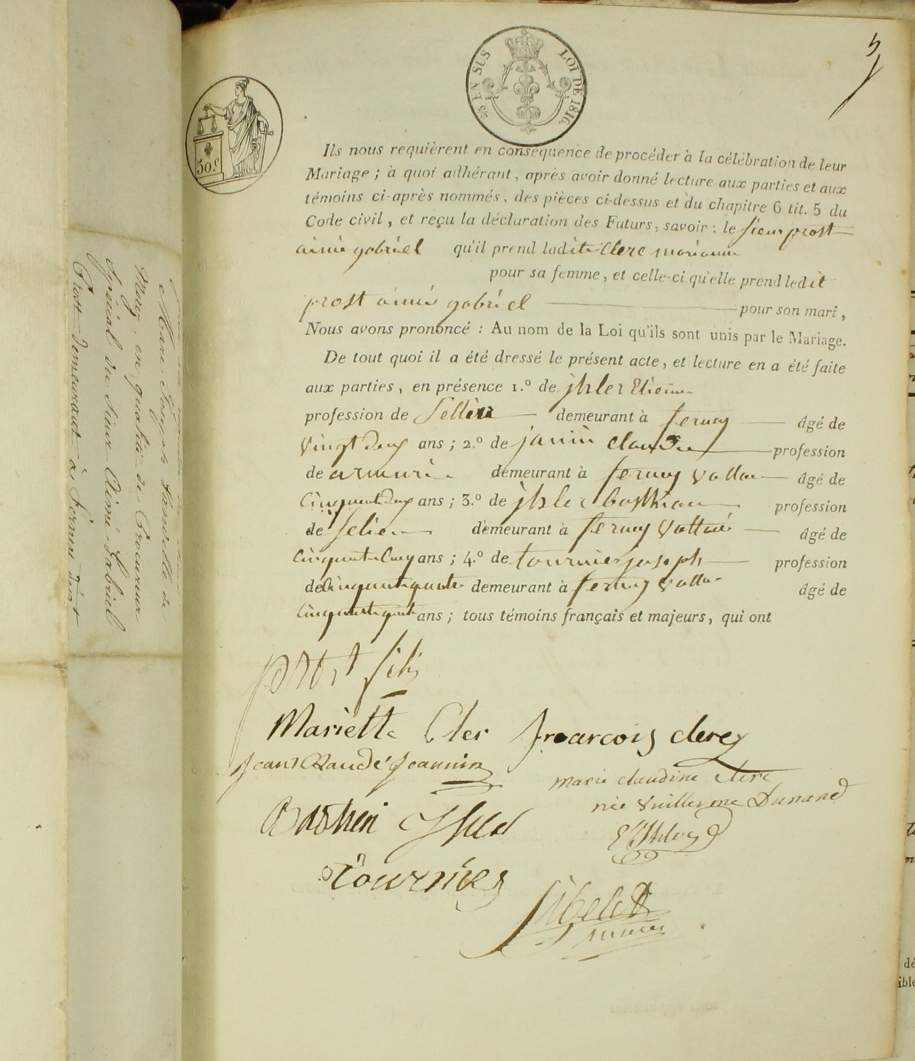 5
25 EN SUS LOI DE 1816.
50 c
Ils nous requièrent en conséquence de procéder à la célébration de leur
Mariage ; à quoi adhérant, après avoir donné lecture aux parties et aux
témoins ci-après nommés, des pièces ci-dessus et du chapitre 6 tit. 5 du
Code civil, et reçu la déclaration des Futurs, savoir : le sieur prost
aimé gabriel qu'il prend ladite Clerc
pour sa femme, et celle-ci qu'elle prend ledit
prost aimé gabriel pour son mari,
Nous avons prononcé : Au nom de la Loi qu'ils sont unis par le Mariage.
De tout quoi il a été dressé le présent acte, et lecture en a été faite
aux parties, en présence 1.º de jhler Etienne
profession de Sellier demeurant à ferney âgé de
vingt deux ans ; 2.º de janin claude profession
de armurie demeurant à ferney voltai âgé de
Cinquante deux ans ; 3.º de jhler basthian profession
de Selier demeurant à ferney Voltai âgé de
Cinquante Cinq ans ; 4.º de tournier joseph profession
de demeurant à ferney voltai âgé de
Cinquante ans ; tous témoins français et majeurs, qui ont
prost fils
Mariette Clerc francois clerc
Jean Claude Jeannin
marie claudine clerc
née Vuillerme Dunand
Basthien Jhler
Tournier
Marie Joseph
May, en qualité de Procureur
Spécial du Sieur Aimé-Gabriel
Prost demeurant à